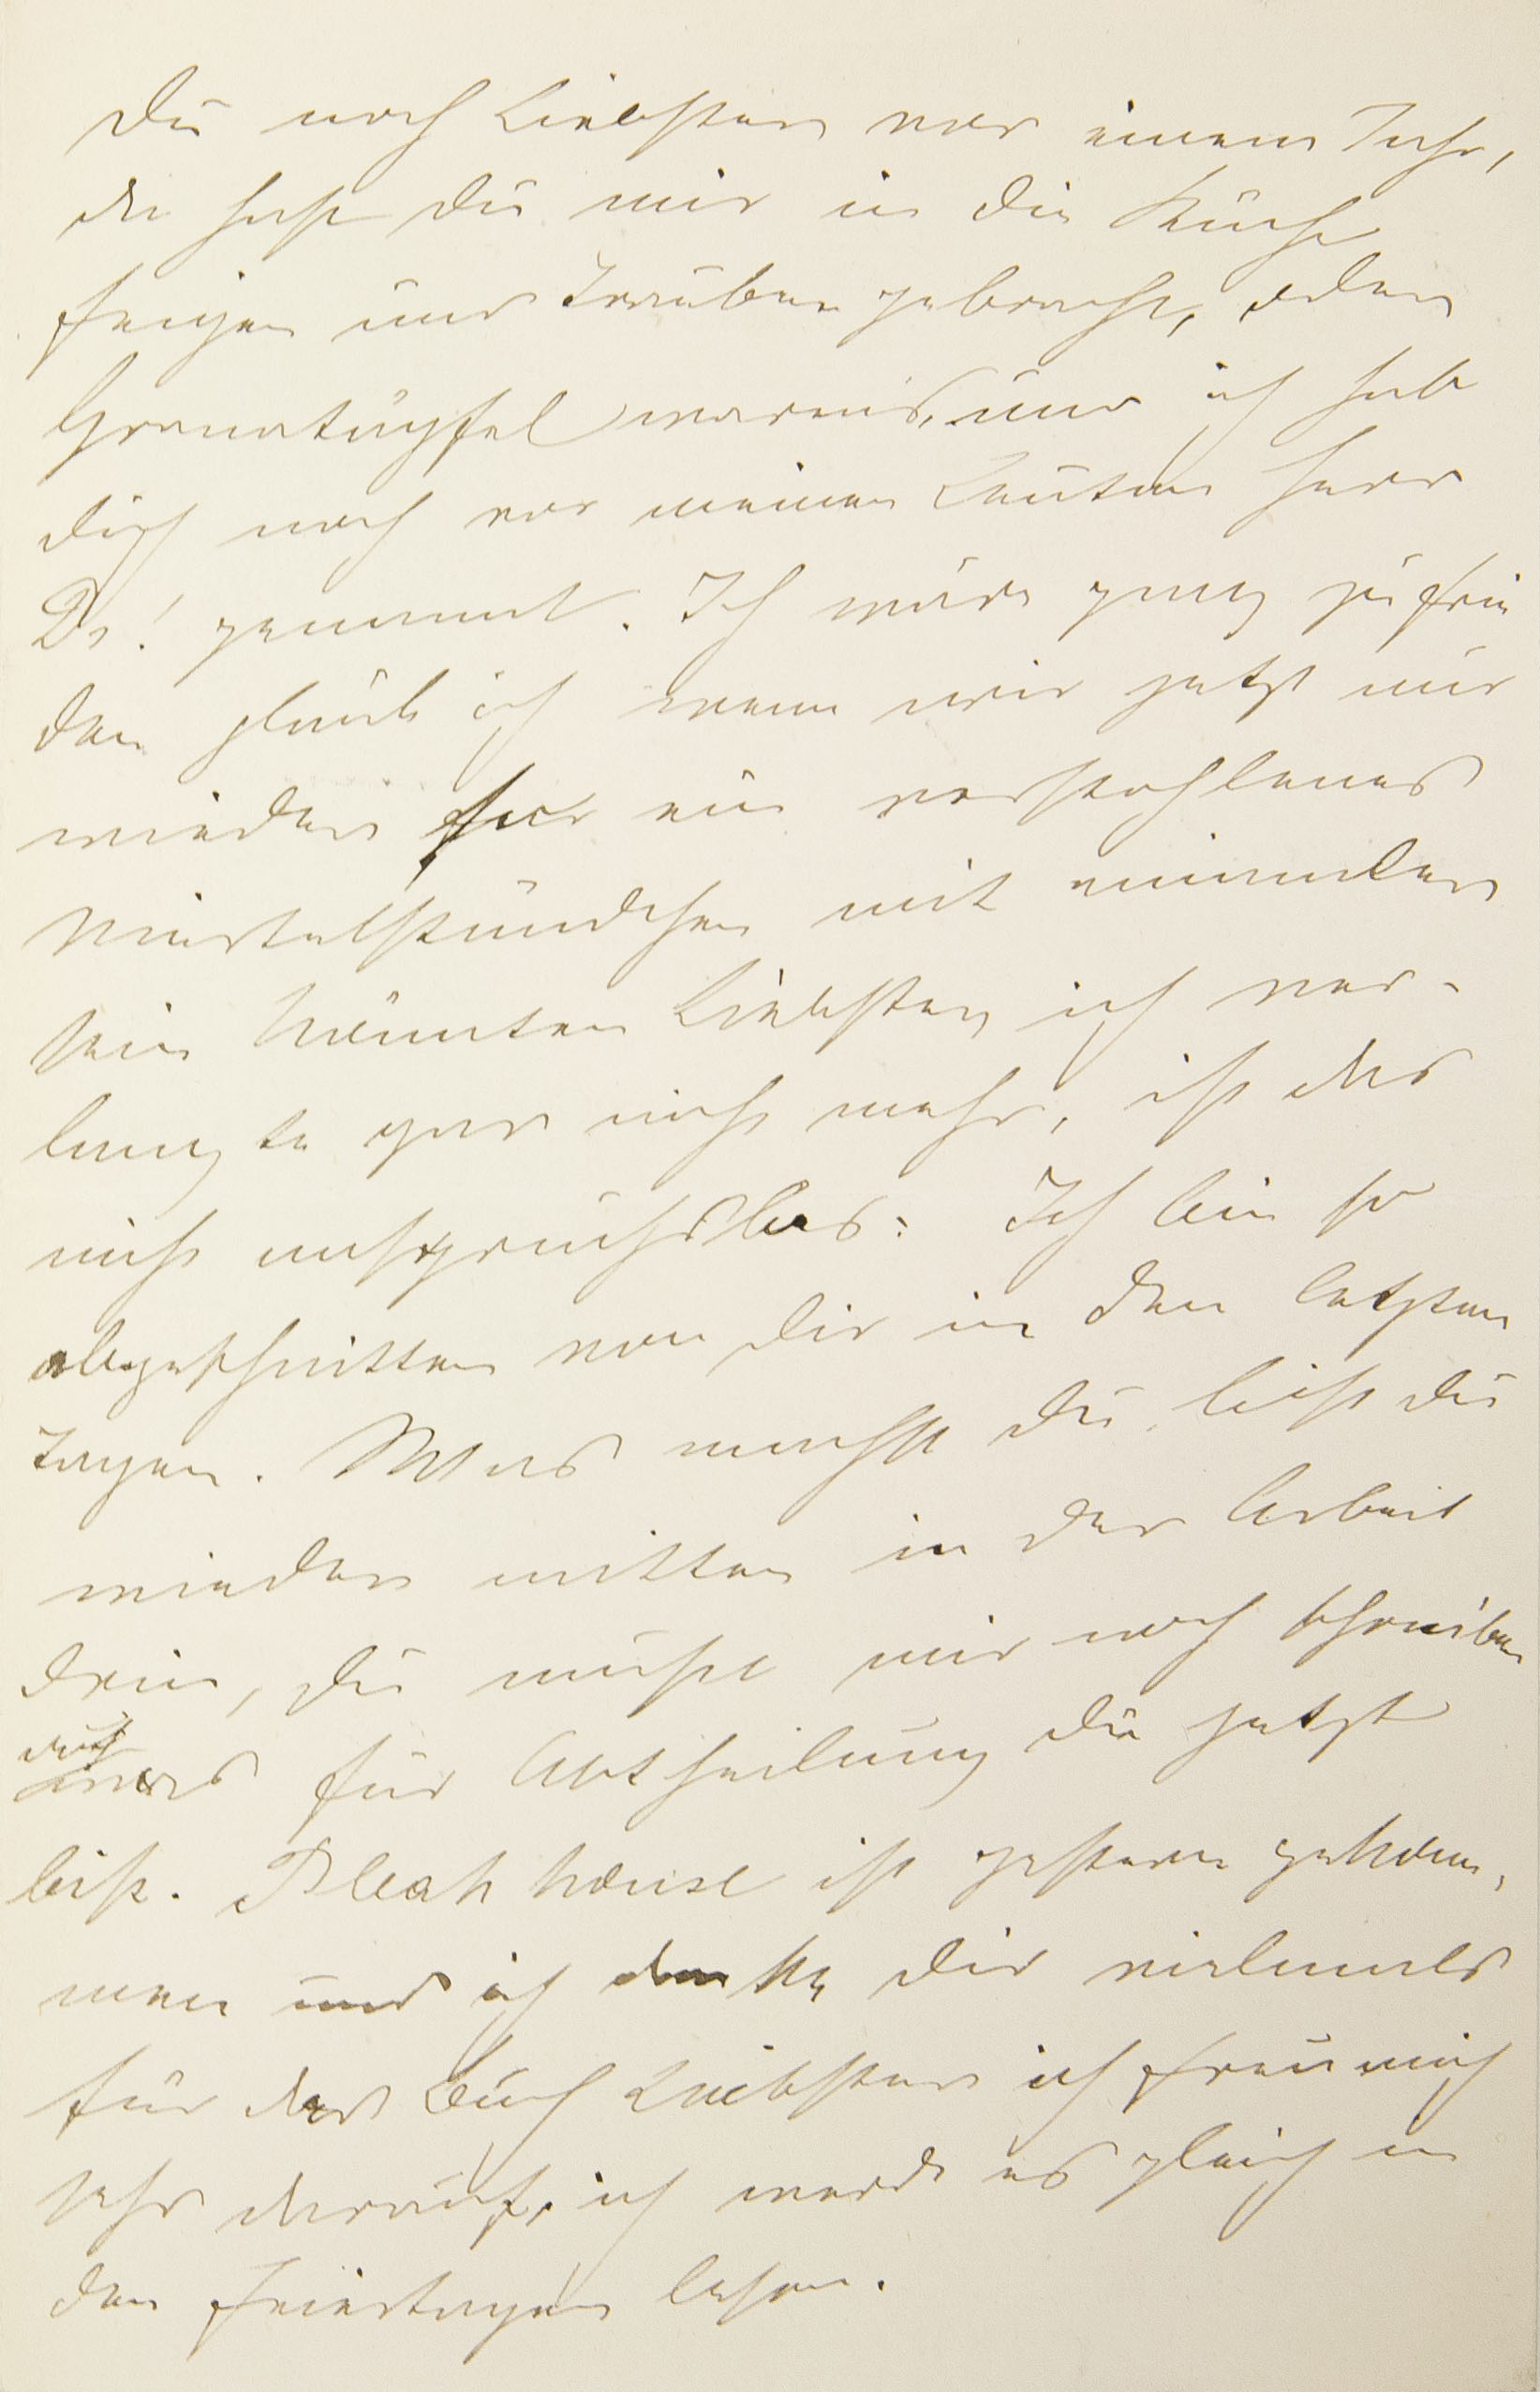 Du noch Liebster vor einem Jahr,
da hast Du mir in die Küche
Feigen und Trauben gebracht, oder
Granatäpfel warens, und ich hab
Dich noch vor meinen Leuten Herr
Dr! genannt. Ich wäre ganz zufrie
den glaub ich wenn wir jetzt nur
wieder für ein verstohlenes
Viertelstündchen mit einander
sein könnten Liebster, ich ver-
langte gar nicht mehr, ist das
nicht anspruchslos: Ich bin so
abgeschnitten von Dir in den letzten
Tagen. Was machst Du, bist Du
wieder mitten in der Arbeit
drin, Du mußt mir noch schreiben
auf was für Abtheilung Du jetzt
bist. Bleak house ist gestern gekom,
men und ich danke Dir vielmals
für das Buch Liebster ich freu mich
sehr darauf, ich werde es gleich in
den Feiertagen lesen.